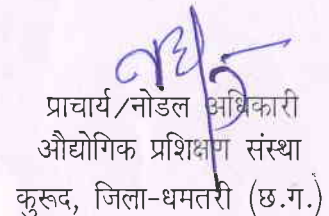 प्राचार्य/नोडल अधिकारी
औद्योगिक प्रशिक्षण संस्था
कुरूद, जिला-धमतरी (छ.ग.)